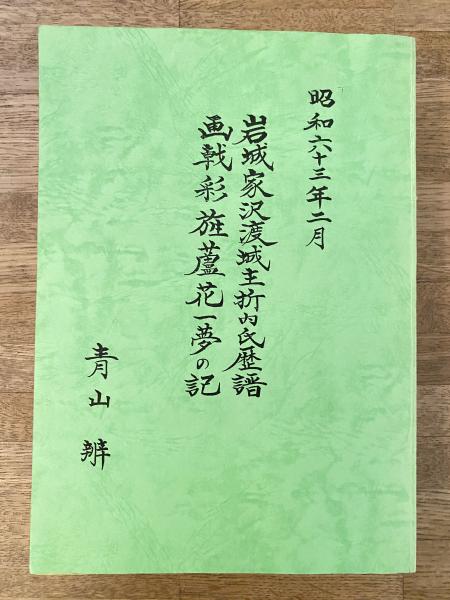 昭和六十三年二月
岩城家沢渡城主折内氏歴譜
画戟彩旌蘆花一夢の記
青山辨